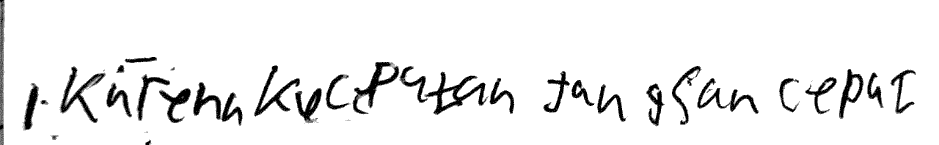 1. Karena kecepatan tangan cepat